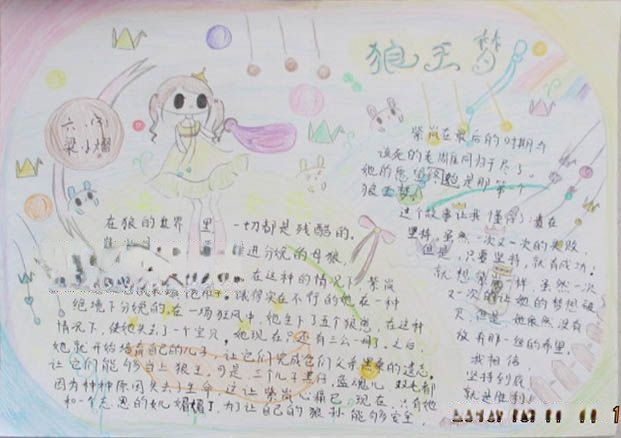 狼王梦
六(
梁小熠
在狼的世界里一切都是残酷的。
进分娩的母狼
在这种的情况下,紫岚
饿得实在不行的她在一种
绝境下分娩的。在一场狂风中她生下了五个狼崽,在这种
情况下,使她失去了一个宝贝,她现在只还有三公一母了。之后,
她就开始培育自己的儿子,让它们完成它们父亲黑桑的遗志。
让它们能够当上狼王。可是,三个儿子黑仔,蓝魂儿,双毛都
因为种种原因失去了生命,这让紫岚心痛已,现在,只有她
和一个忘恩的女儿媚媚了,为了让自己的狼孙能够安全,
紫岚在最后的时期与
该死的老雕同归于尽了。
她的愿望
狼王梦。
这个故事让我懂得了:贵在
坚持,虽然一次又一次的失败,
但是,只要坚持,就有成功。
就想紫岚一样,虽然一次
又一次的让她的梦想破
灭,但是,她依然没有
放弃那一丝的希望。
我相信,
坚持到底,
就是胜利!